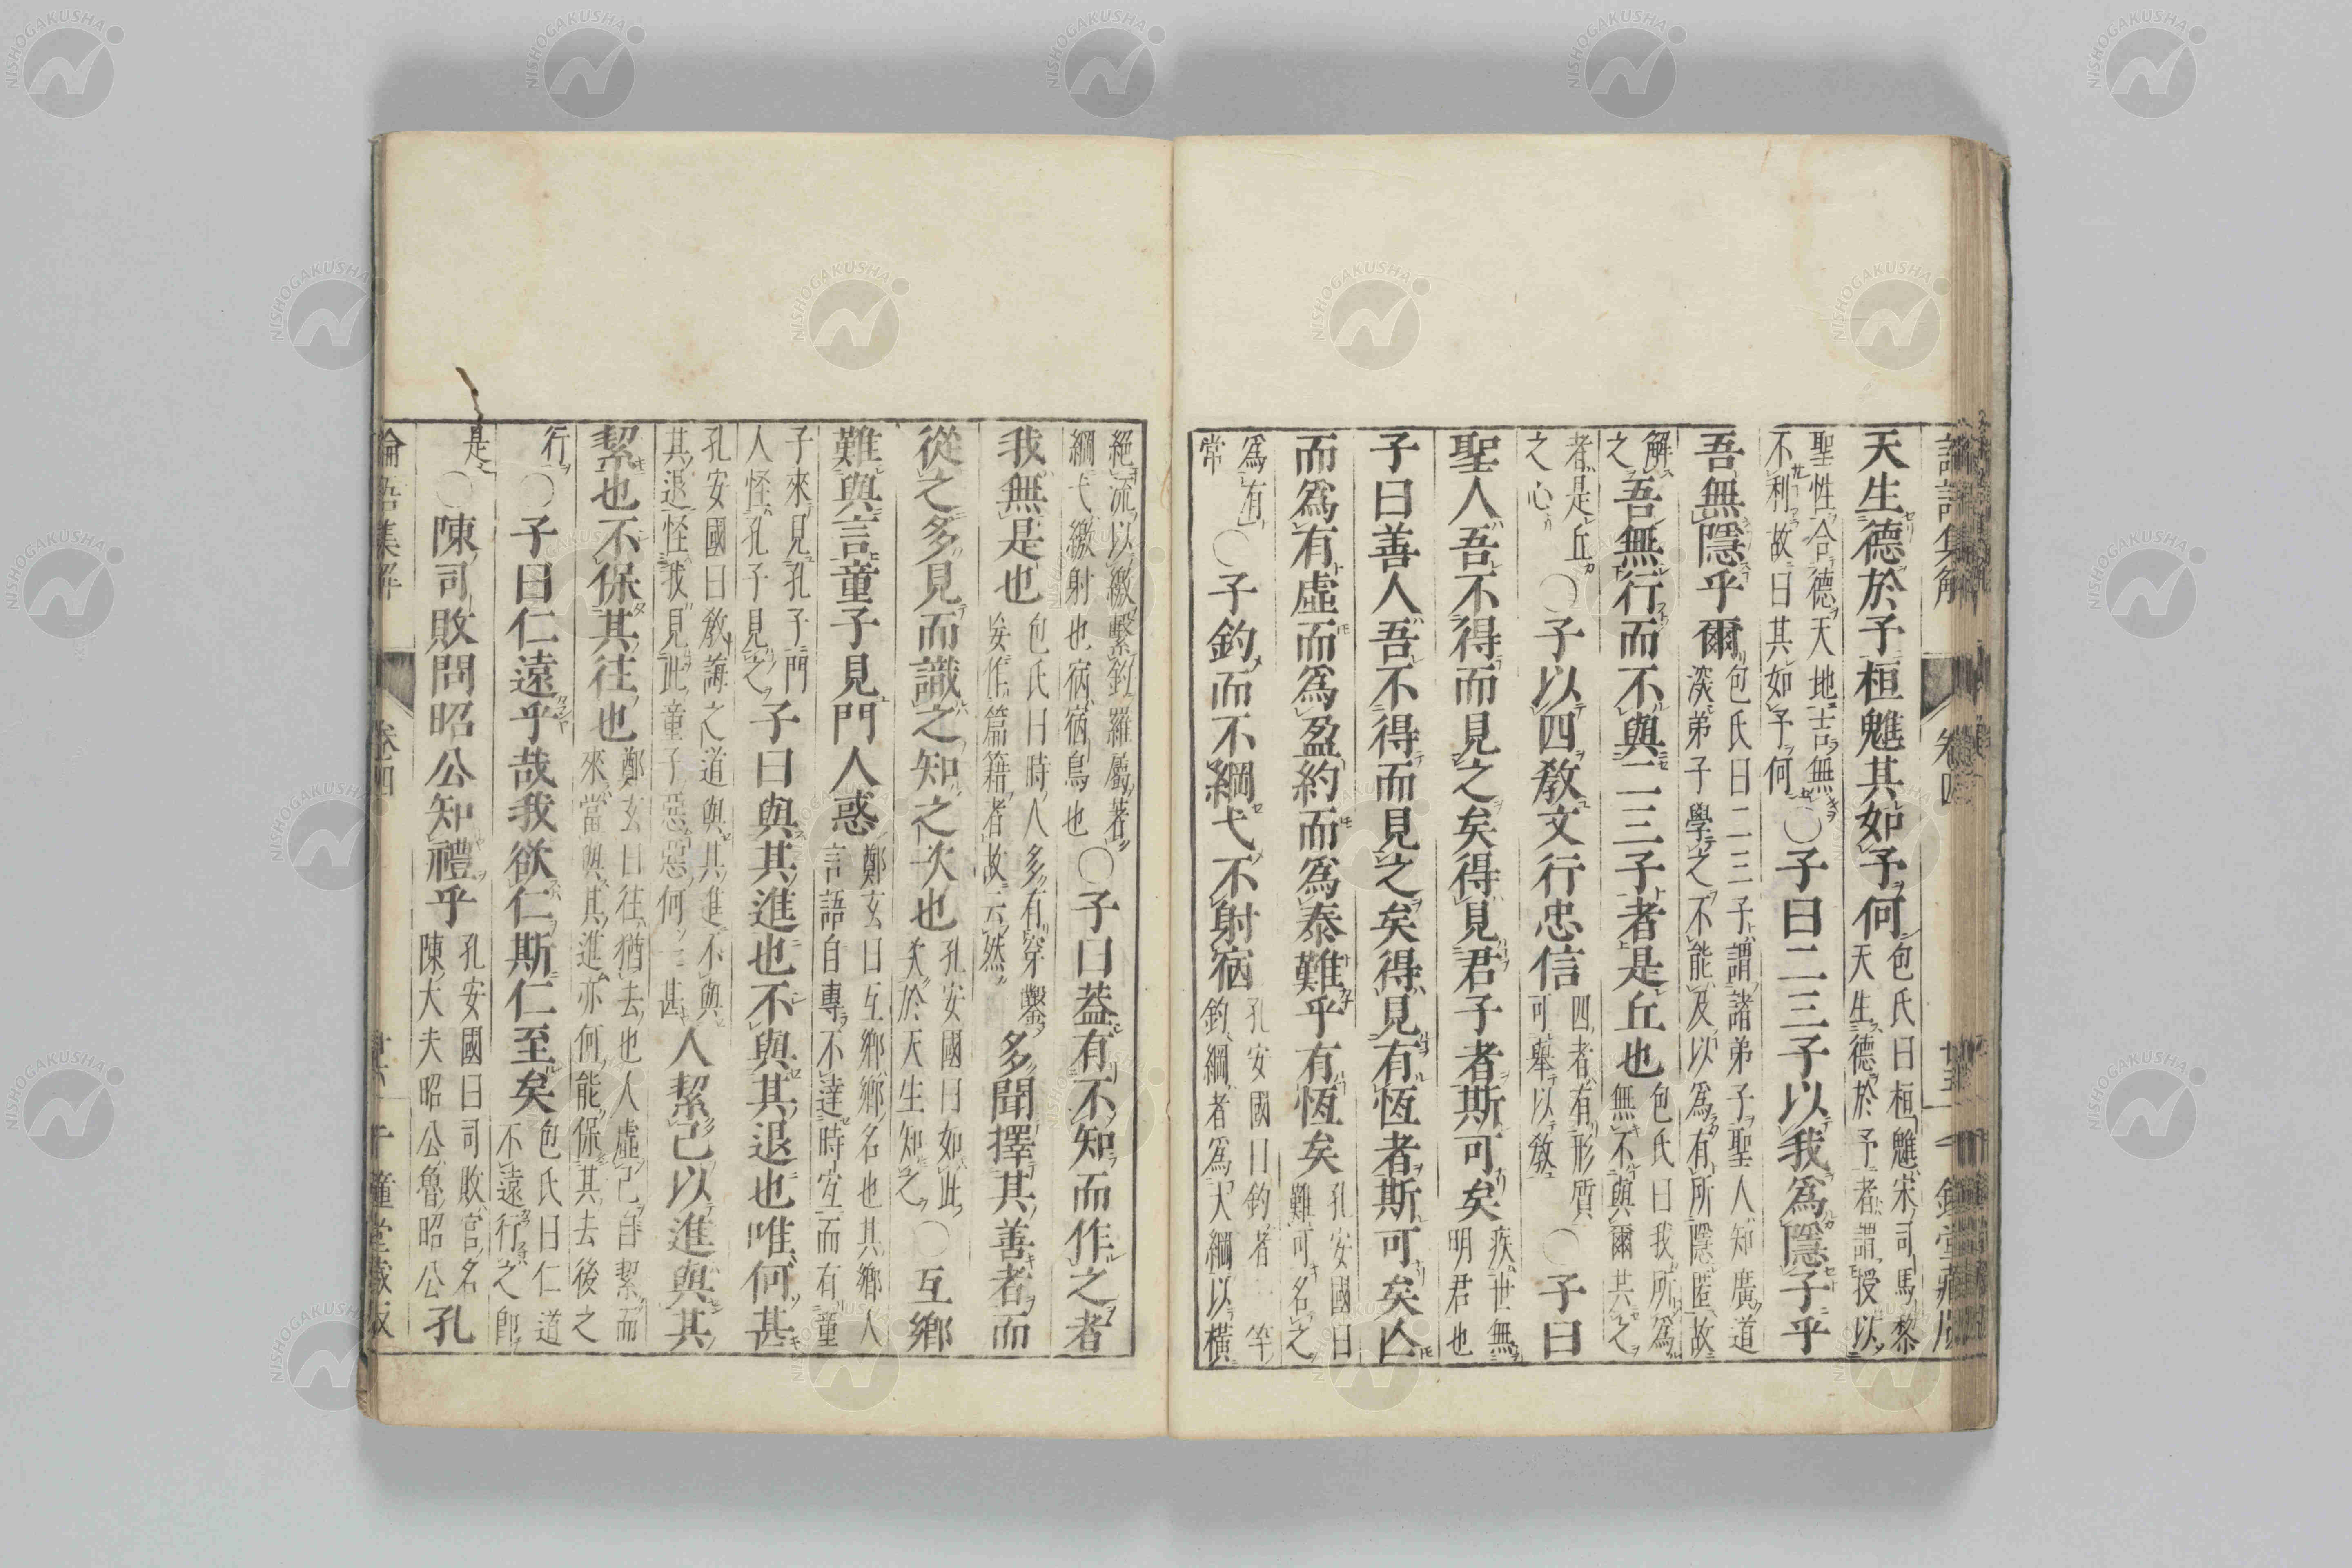 天生德於予桓魋其如予何包氏曰桓魋宋司馬黎天生德於予者謂授以
聖性合德天地吉無不利故曰其如予何○子曰二三子以我爲隱子乎
吾無隱乎爾包氏曰二三子謂諸弟子聖人知廣道深弟子學之不能及以爲有所隱匿故
解之吾無行而不與二三子者是丘也包氏曰我所爲無不與爾共之
者是丘之心○子以四教文行忠信四者有形質可舉以教○子曰
聖人吾不得而見之矣得見君子者斯可矣疾世無明君也
子曰善人吾不得而見之矣得見有恆者斯可矣亾
而爲有虛而爲盈約而爲泰難乎有恆矣孔安國曰難可名之
爲有常○子釣而不綱弋不射宿孔安國曰釣者一竿釣綱者爲大綱以橫
絕流以繳繫釣羅屬著綱弋繳射也宿宿鳥也○子曰葢有不知而作之者
我無是也包氏曰時人多有穿鑿妄作篇籍者故云然多聞擇其善者而
從之多見而識之知之次也孔安國曰如此次於天生知之○互鄉
難與言童子見門人惑鄭玄曰互鄉鄉名也其鄉人言語自專不達時宜而有童
子來見孔子門人怪孔子見之子曰與其進也不與其退也唯何甚
孔安國曰教誨之道與其進不與其退怪我見此童子惡惡何一甚人絜己以進與其
絜也不保其往也鄭玄曰往猶去也人虛己自絜而來當與其進亦何能保其去後之
行○子曰仁遠乎哉我欲仁斯仁至矣包氏曰仁道不遠行之卽
是○陳司敗問昭公知禮乎孔安國曰司敗官名陳大夫昭公魯昭公孔
論語集解 卷四 千鍾堂藏版